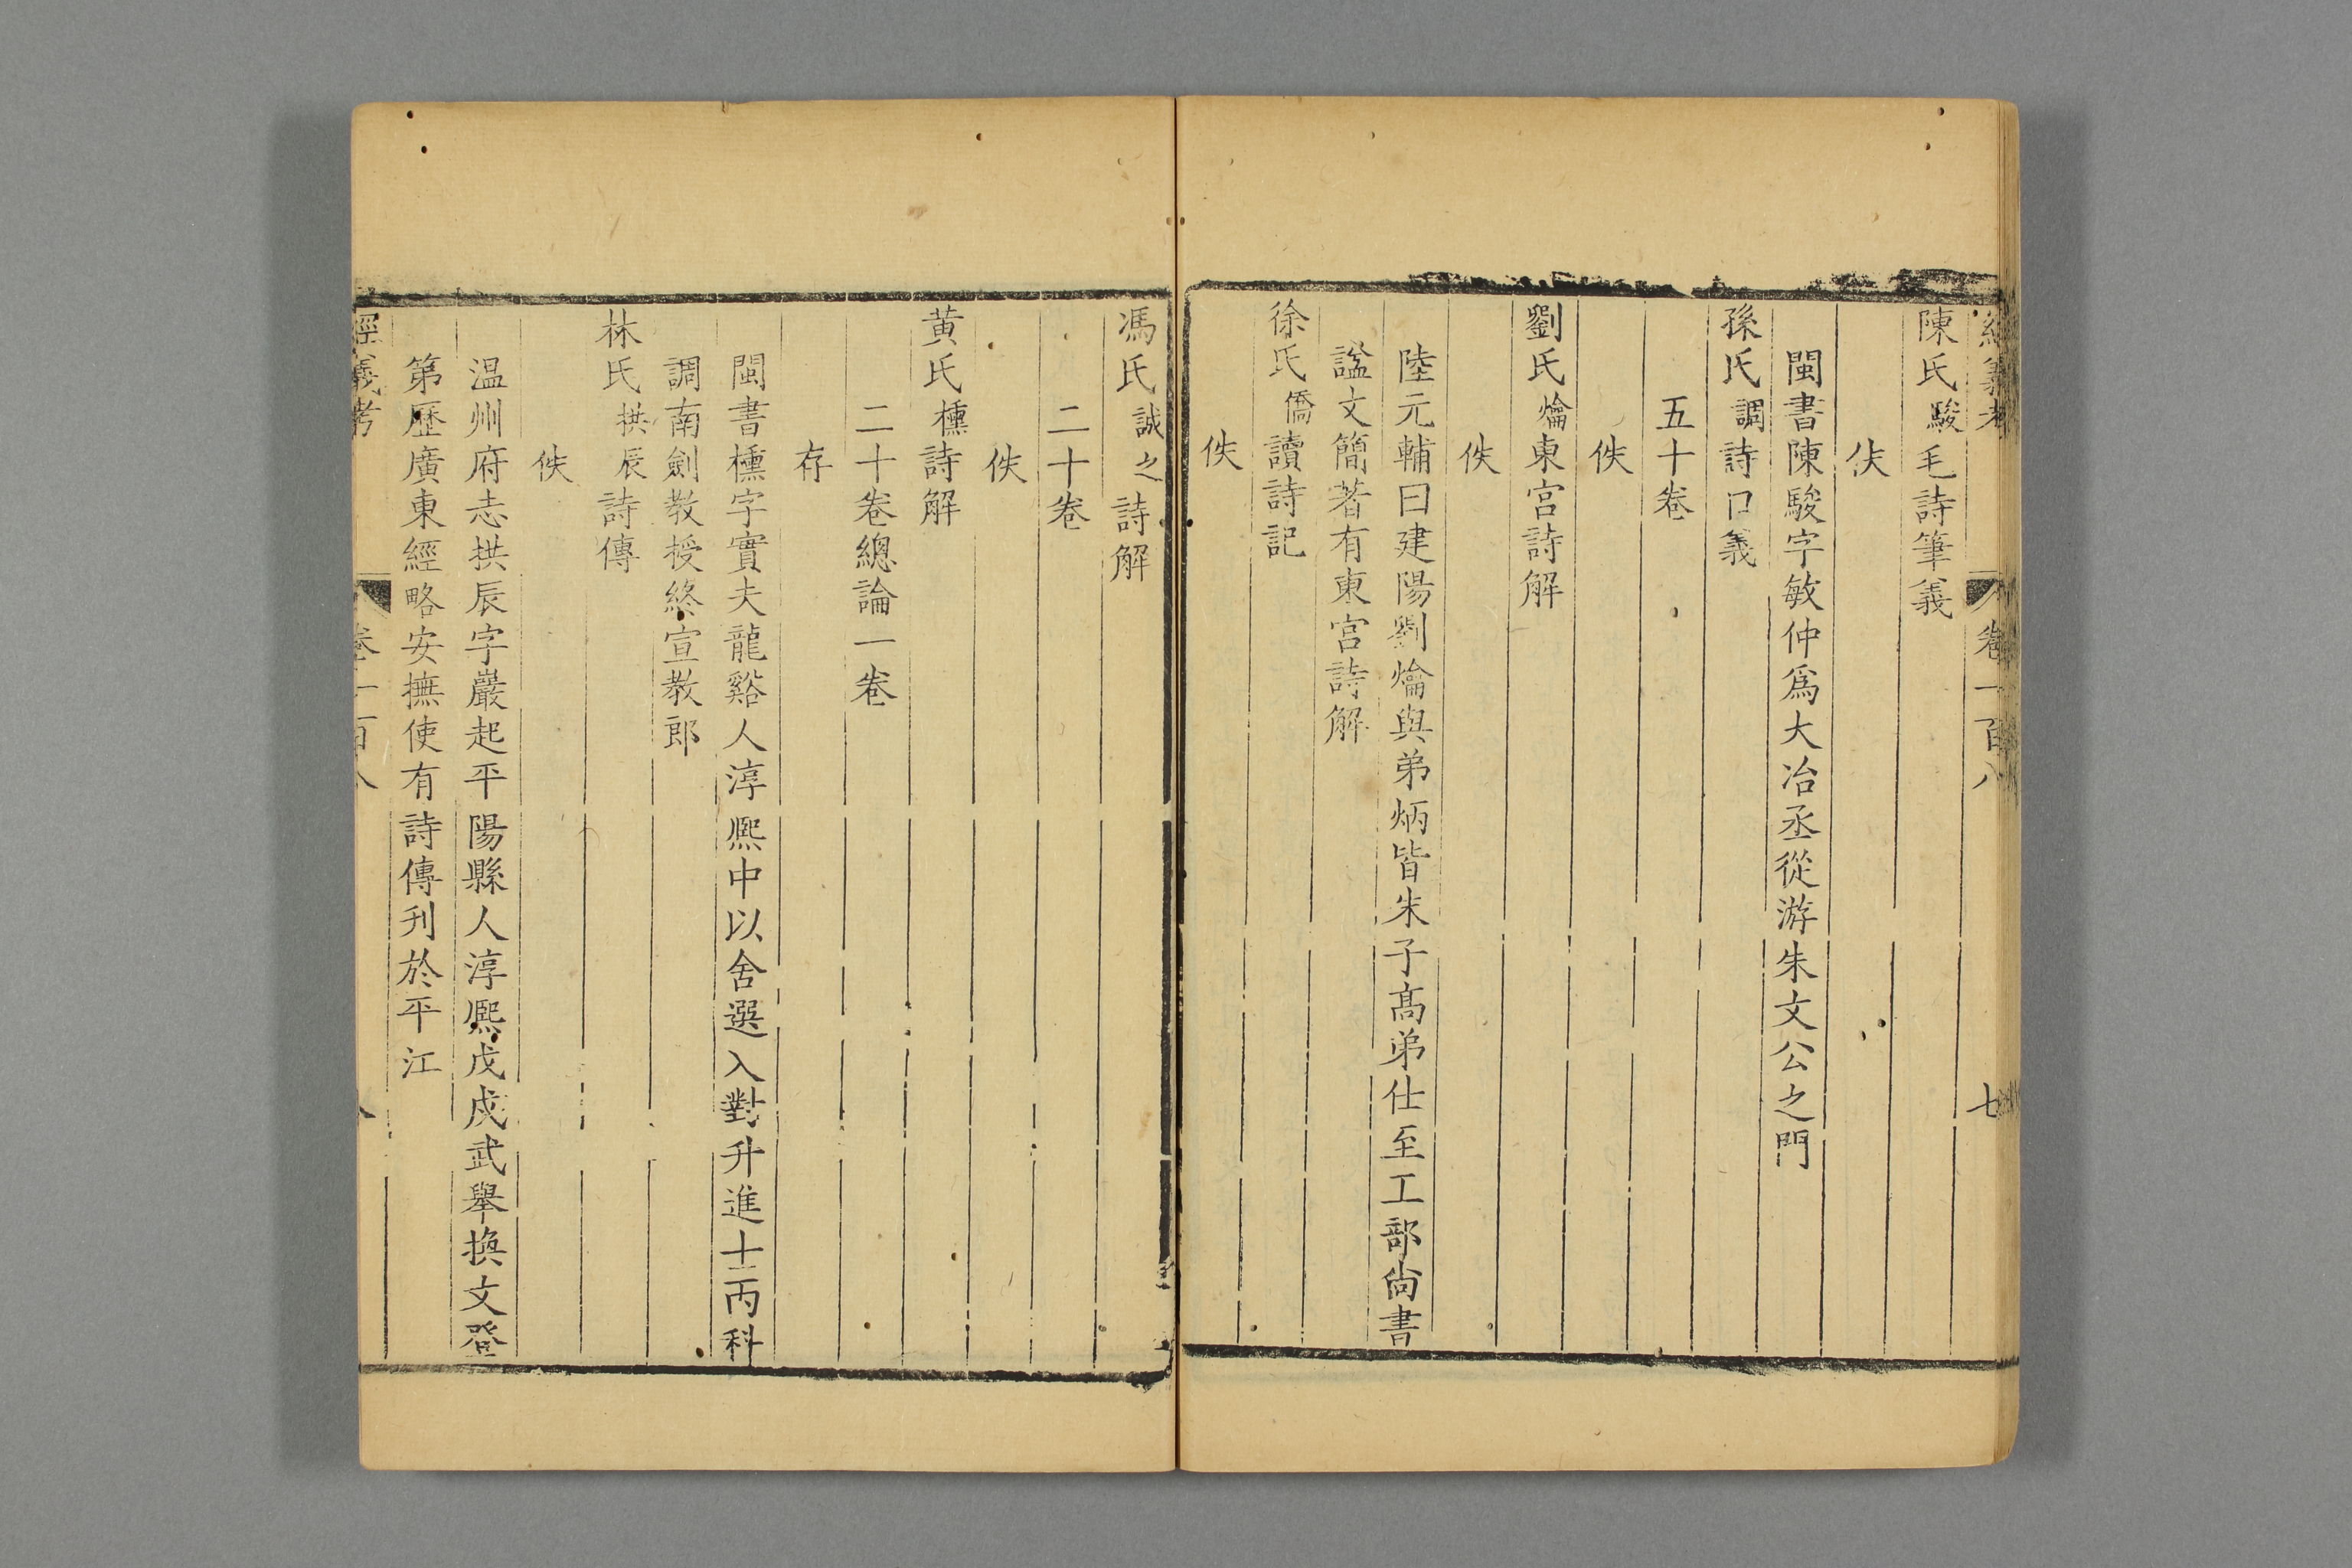 經義考 卷一百八 七
陳氏駿毛詩筆義
佚
閩書陳駿字敏仲爲大冶丞從游朱文公之門
孫氏調詩口義
五十卷
佚
劉氏爚東宮詩解
佚
陸元輔曰建陽劉爚與弟炳皆朱子高弟仕至工部尚書
諡文簡著有東宮詩解
徐氏僑讀詩記
佚
馮氏誠之詩解
二十卷
佚
黃氏櫄詩解
二十卷總論一卷
存
閩書櫄字實夫龍谿人淳熙中以舍選入對升進士丙科
調南劍教授終宣教郎
林氏拱辰詩傳
佚
温州府志拱辰字巖起平陽縣人淳熙戊戌武舉換文登
第歷廣東經略安撫使有詩傳刊於平江
經義考 卷一百八 八